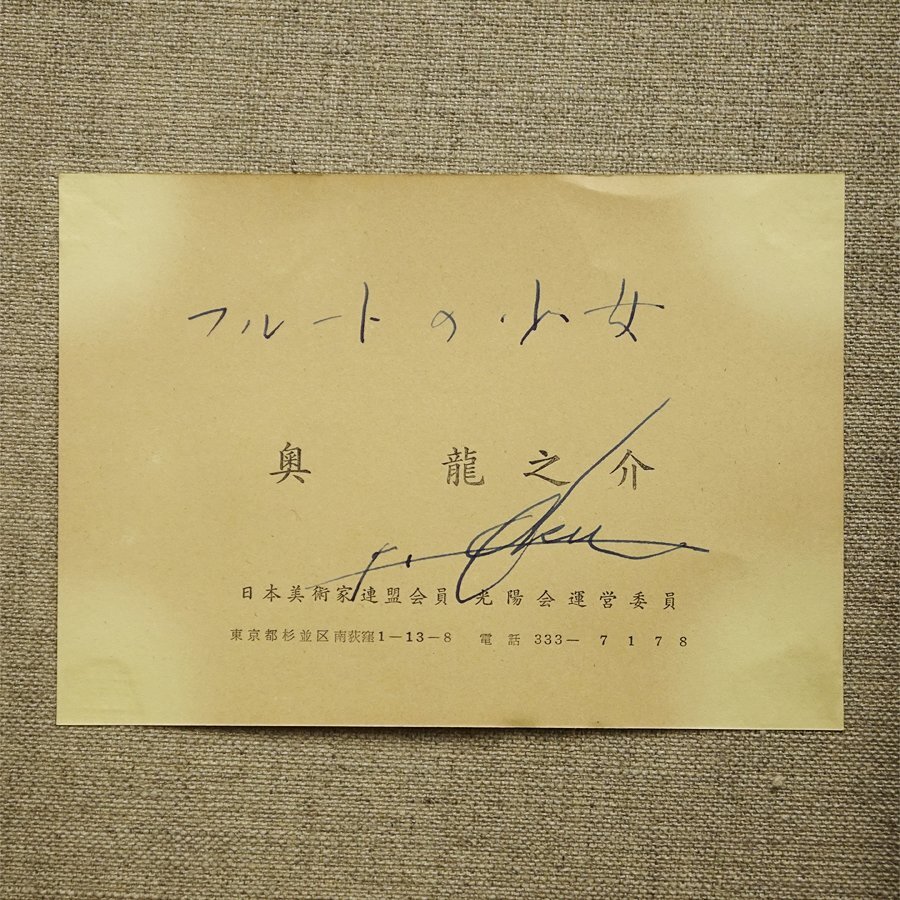 フルートの少女
奥 龍之介
r. Oku
日本美術家連盟会員 光陽会運営委員
東京都杉並区南荻窪1-13-8 電話 333-7178